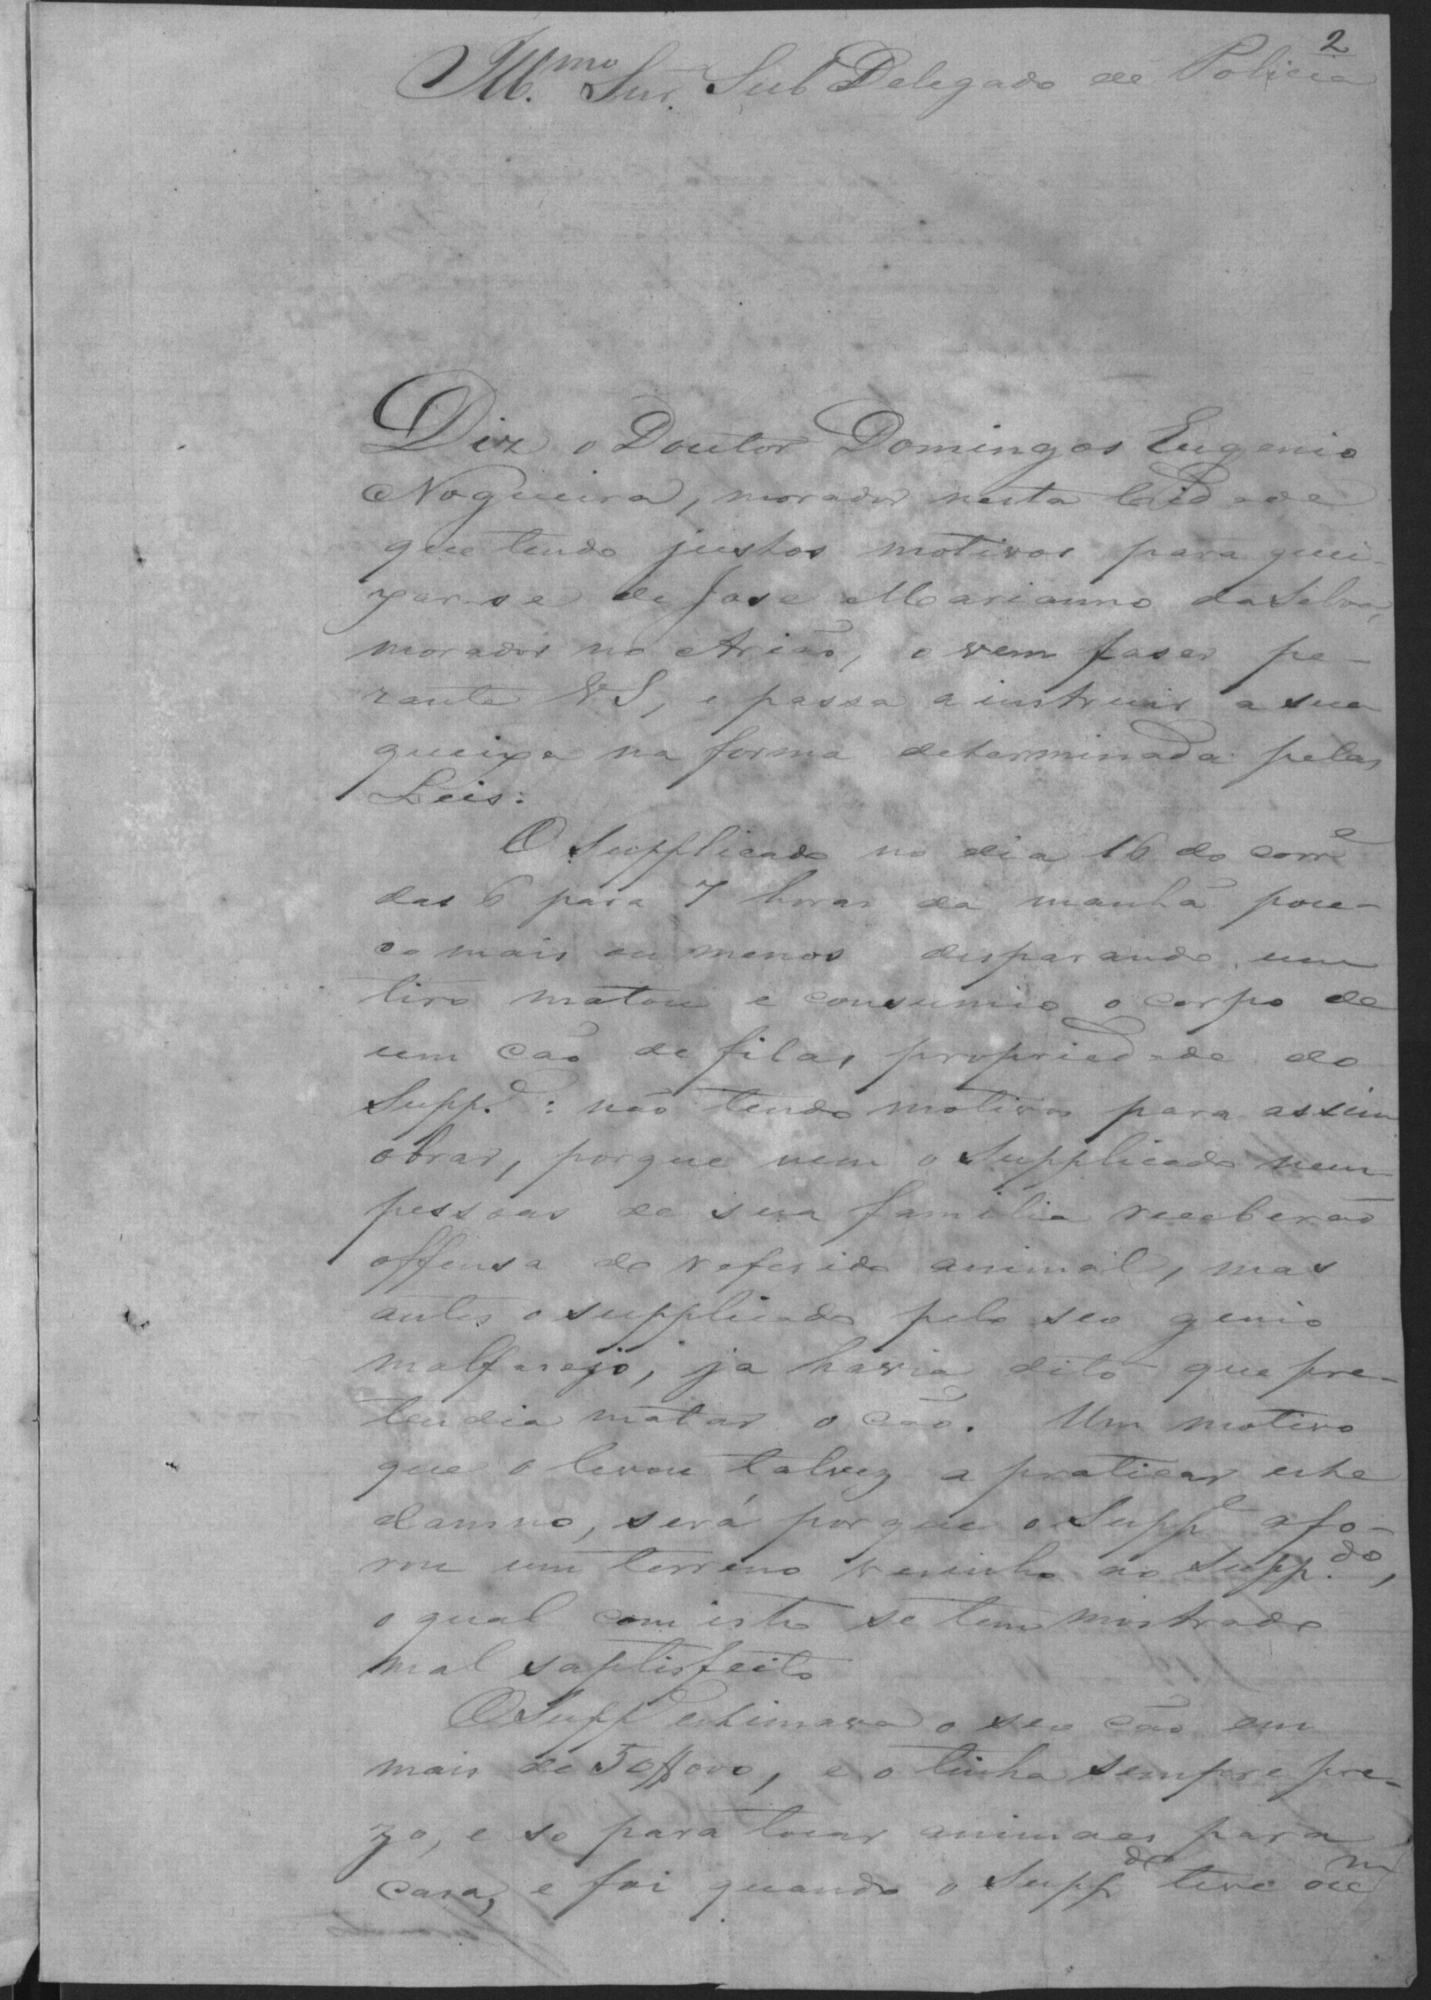 2
Ill.mo Snr. Sub Delegado de Policia
Diz o Doutor Domingos Eugenio
Nogueira, morador nesta Cidade
que tendo justos motivos para quei-
xar-se de Jose Marianno da Silva,
morador no Arião, o vem faser pe-
rante V S, e passa a instruir a sua
queixa na forma determinada pelas
Leis:
O Supplicado no dia 16 do corre
das 6 para 7 horas da manhã pou-
co mais ou menos disparando um
tiro matou e consumio o corpo de
um cão de fila, propriedade do
Supp.e: não tendo motivos para assim
obrar, porque nem o Supplicado nem
pessoas de sua familia receberão
offensa do referido animal, mas
antes o supplicado pelo seo genio
malfasejo, ja havia dito que pre-
tendia matar o cão. Um motivo
que o levou talvez a praticar este
damno, será porque o Suppe afo-
rou um terreno vesinho ao Supp.do,
o qual com isto se tem mostrado
mal saptisfeito
O Suppe estimava o seo cão em
mais de 50$000, e o tinha sempre pre-
zo, e so para tocar animaes para
casa, e foi quando o Suppdo teve